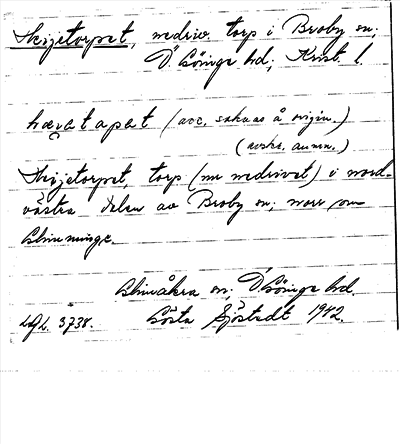 Skijetorpet, nedriv. torp i Broby sn;
Ö. Göinge hd, Krist. l.
(acc. saknas å origin.)
(avskr. anm.)
Skijetorpet, torp (nu nedrivet) i nord-
västra delen av Broby sn; norr om
Glimminge.
Glimåkra sn; Ö Göinge hd.
LGL. 3738. Gösta Sjöstedt 1942.